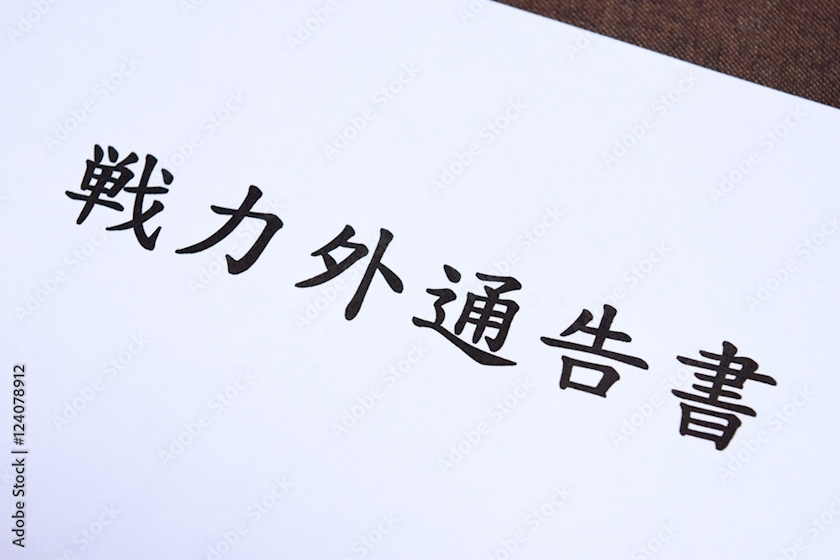 戦力外通告書
Adobe Stock | #124078912
Adobe Stock